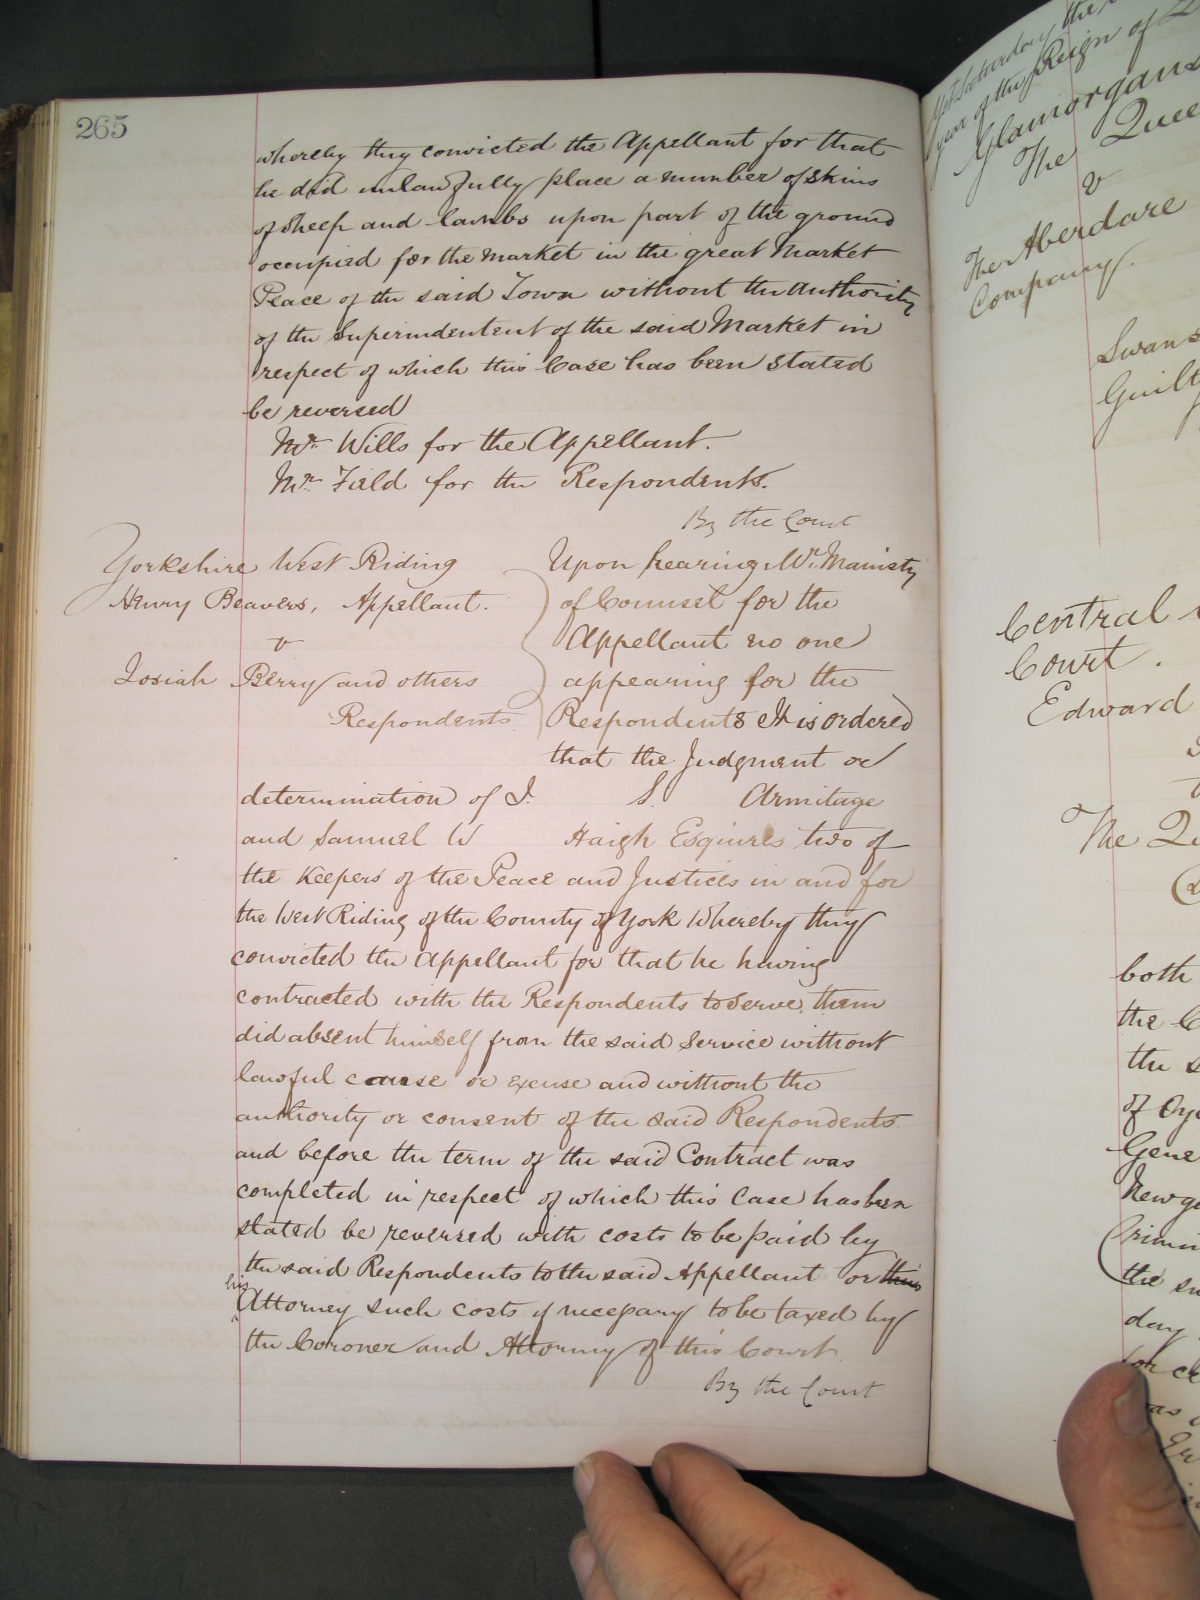 265
whereby they convicted the Appellant for that
he did unlawfully place a number of skins
of sheep and lambs upon part of the ground
occupied for the market in the great Market
Peace of the said Town without the authority
of the Superindentent of the said Market in
respect of which this Case has been stated
be reversed
Mr. Wills for the Appellant.
Mr. Field for the Respondents.
By the Court
Yorkshire West Riding
Henry Beavers, Appellant.
v
Josiah Berry and others
Respondents
Upon hearing Mr. Manisty
of Counsel for the
Appellant no one
appearing for the
Respondents It is ordered
that the Judgment or
determination of J. S. Armitage
and Samuel W Haigh Esquires two of
the Keepers of the Peace and Justices in and for
the West Riding of the County of York Whereby they
convicted the Appellant for that he having
contracted with the Respondents to serve them
did absent himself from the said Service without
lawful cause or excuse and without the
authority or consent of the said Respondents
and before the term of the said Contract was
completed in respect of which this Case has been
stated be reversed with costs to be paid by
the said Respondents to the said Appellant or
his Attorney such costs if necessary to be taxed by
the Coroner and Attorney of this Court.
By the Court
year of the Reign of
Glamorgans
The Quee
v
The Aberdare
Company.
Swans
Guilt
Central
Court.
Edward
The Qu
both
the C
the s
of Oye
Gene
Newga
Crimin
the su
day